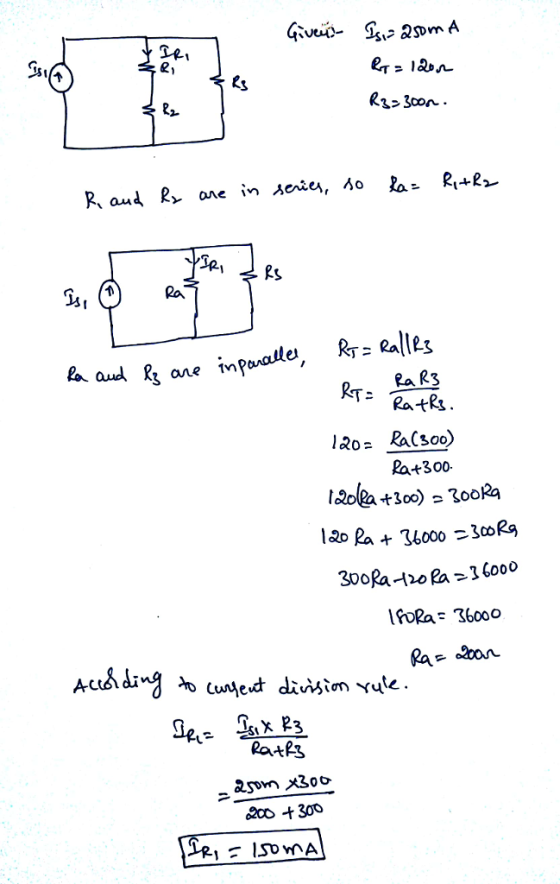 Given:- Is₁ = 250mA
RT = 120Ω
R3 = 300Ω.
Is₁
IR₁
R₁
R₂
R3
R₁ and R₂ are in series, so Ra = R₁+R₂
Is₁
IR₁
Ra
R3
Ra and R3 are inparallel,
RT = Ra||R3
RT = Ra R3
Ra+R3.
120 = Ra(300)
Ra+300.
120(Ra+300) = 300Ra
120 Ra + 36000 = 300Ra
300Ra-120Ra = 36000
180Ra = 36000
Ra = 200Ω
According to current division rule.
IR₁ = Is₁ x R3
Ra+R3
= 250m x300
200 + 300
IR₁ = 150mA